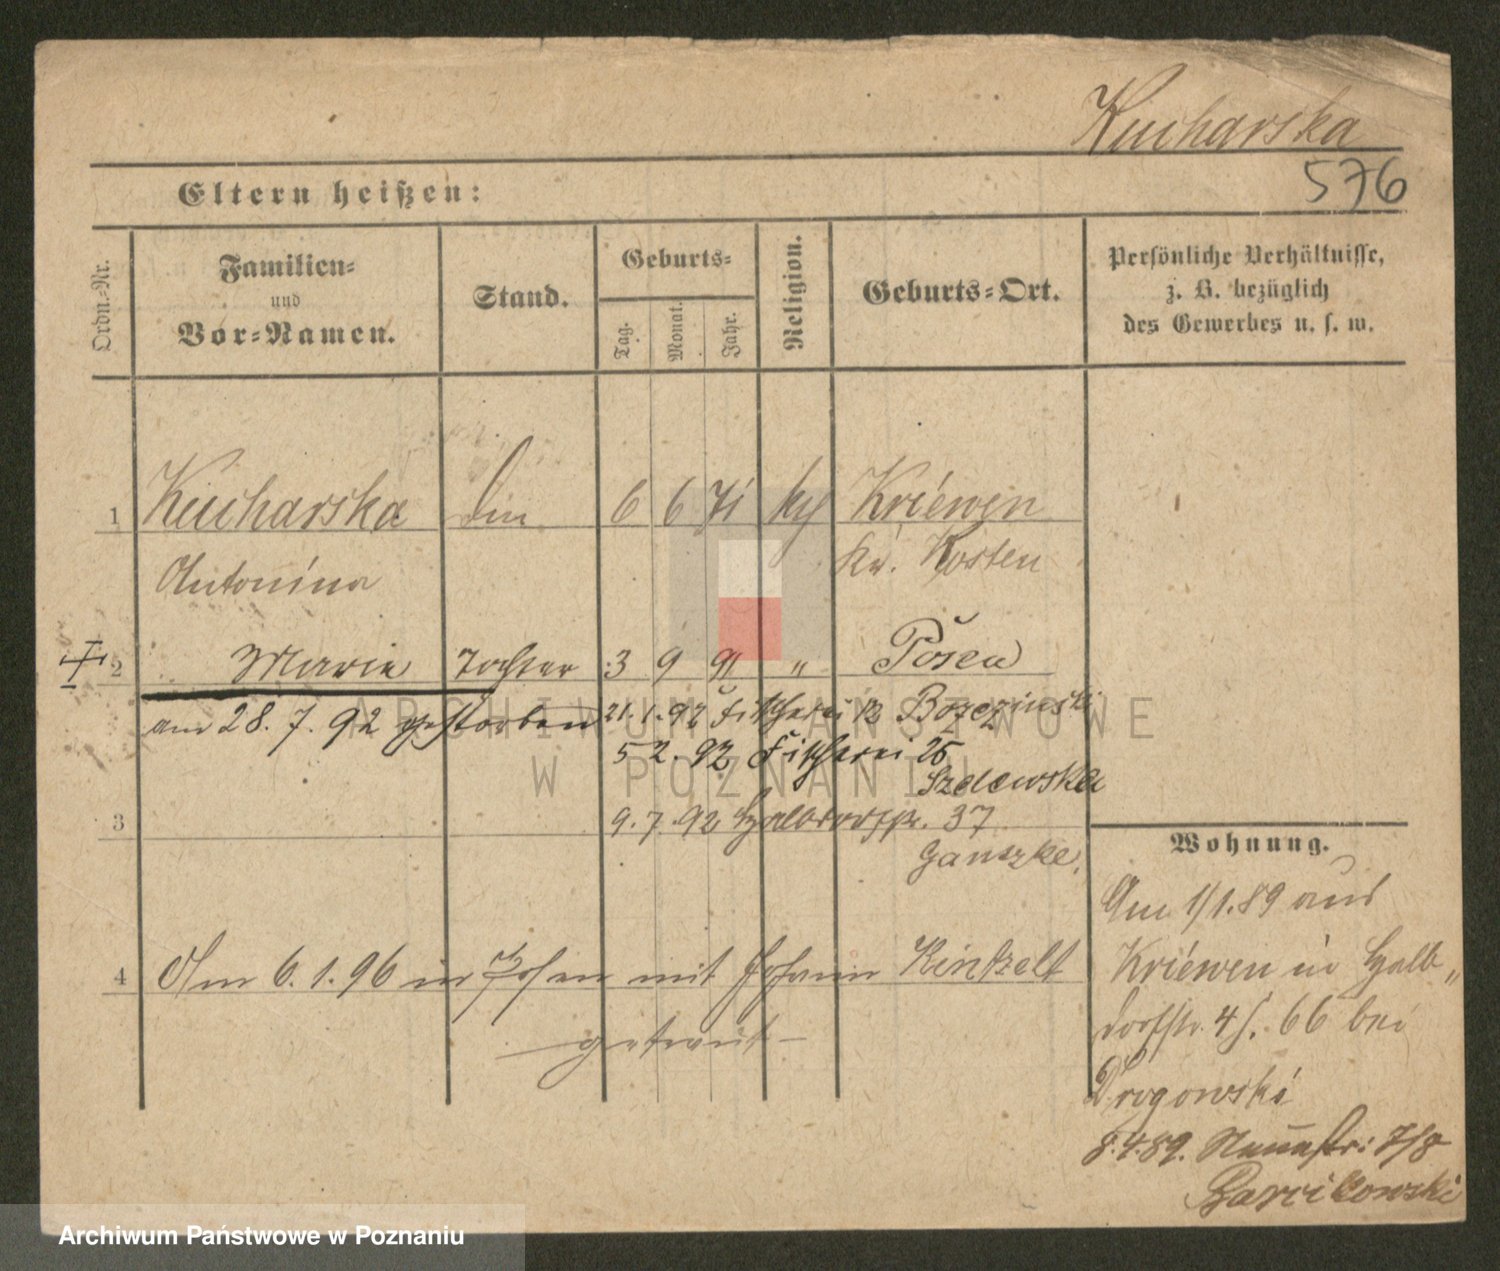 Kucharska
576
Eltern heißen:
Ordn.-Nr.
Familien-
und
Vor-Namen.
Stand.
Geburts-
Tag.
Monat.
Jahr.
Religion.
Geburts-Ort.
Persönliche Verhältnisse,
z. B. bezüglich
des Gewerbes u. s. w.
1 Kucharska 6 6 71 Kriewen
Antonina Kr. Kosten
2 Marie Tochter 3 9 91 " Posen
am 28. 7. 92 gestorben 21. 1. 92 Fischerei 12
5 2. 92 Fischerei 25
9. 7. 92 Halbdorfstr. 37
3
Ganszke
4 Am 6. 1. 96 in Posen mit Johann
getraut
Wohnung.
Am 1/1. 89 aus
Kriewen in Halb„
dorfstr. 66 bei
Drogowski
8. 4. 89. 7/8
ARCHIWUM PAŃSTWOWE
W POZNANIU
Archiwum Państwowe w Poznaniu